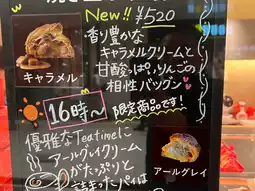 New!! ¥520
香り豊かな
キャラメルクリームと
甘酸っぱいりんごの
相性バツグン
キャラメル
16時〜
限定商品です!
優雅なTeatimeに
アールグレイクリーム
がたっぷりと
パイは
アールグレイ